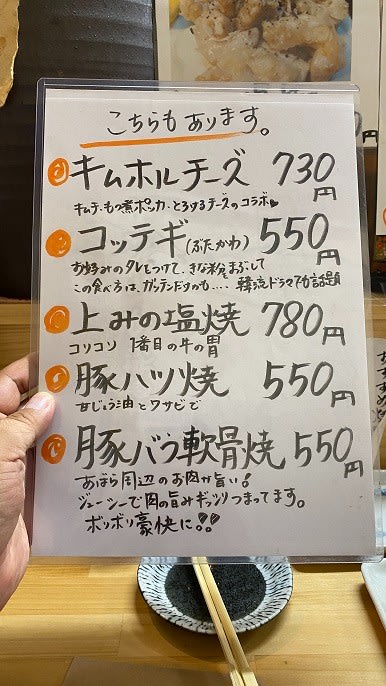 こちらもあります。
キムホルチーズ 730円
キムチ、もつ煮ポッカ、とろけるチーズのコラボ♥
コッテギ(ぶたかわ) 550円
お好みのタレをつけて、きな粉まぶして
この食べ方は、ガッテンだものも.... 韓流ドラマでも話題
上みの塩焼 780円
コリコリ 1番目の牛の胃
豚ハツ焼 550円
甘じょう油とワサビで
豚バラ軟骨焼 550円
あばら周辺のお肉が旨い!
ジューシーで肉の旨みギッシリつまってます。
ボリボリ豪快に!!